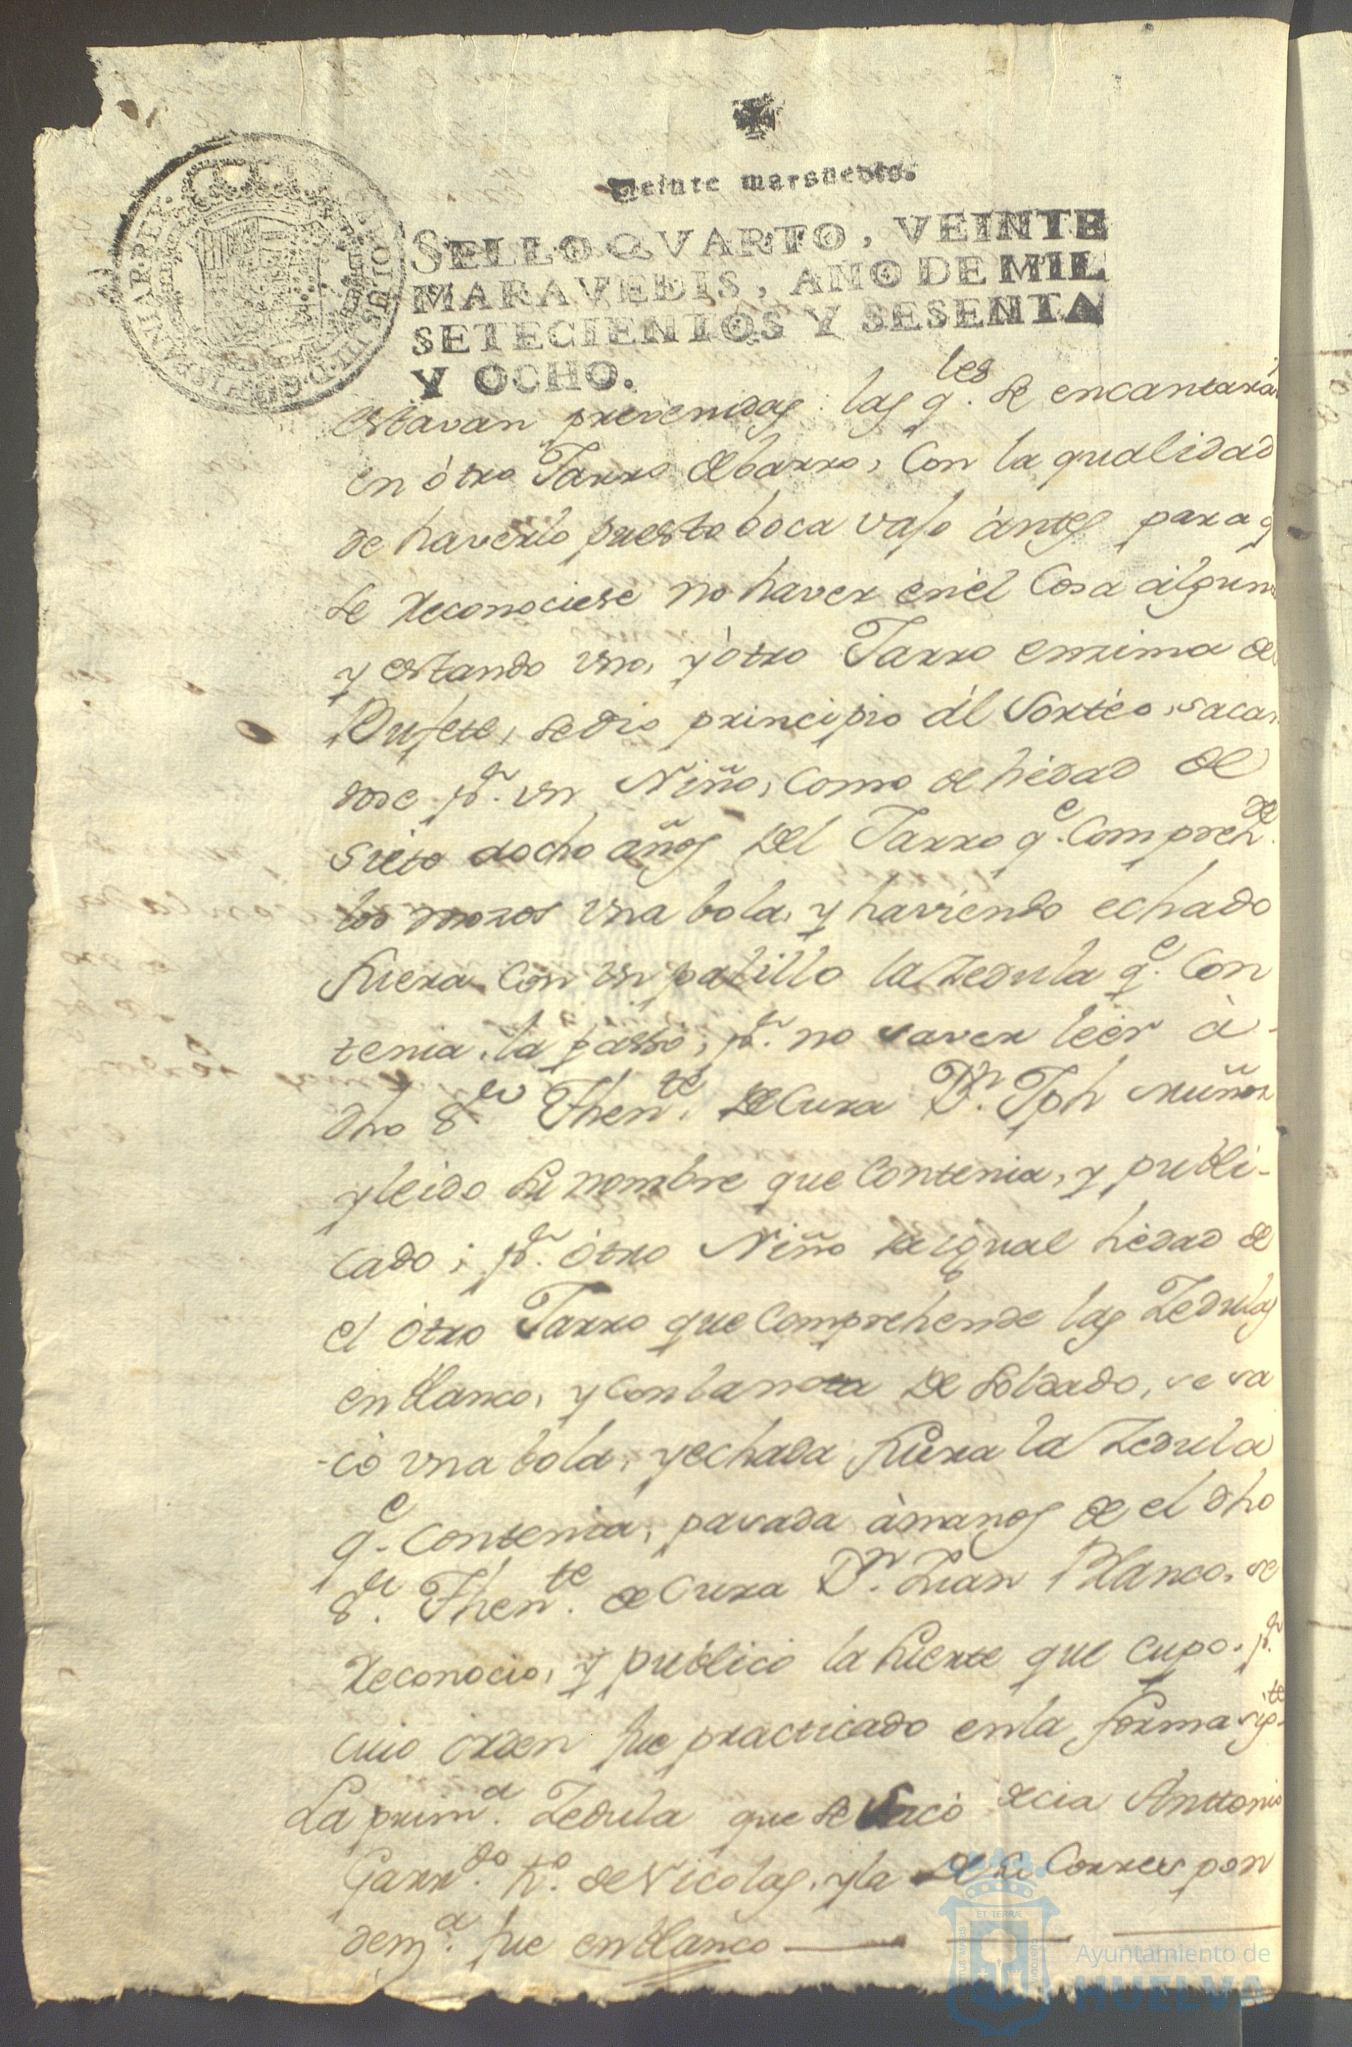 Veinte maravedis.
SELLO QVARTO, VEINTE
MARAVEDIS, AÑO DE MIL
SETECIENTOS Y SESENTA
Y OCHO.
estavan prevenidas las q.les se encantarán
en òtro Tarro de barro, Con la qualidad
de haverlo puesto boca vajo àntes para q
se Reconociese no haver en èl Cosa àlguna
y estando uno, y òtro Tarro enzima del
Bufete, se dio principio àl Sorteo, sacan
dose p.r un Niño, Como de hedad de
siete a ocho años Del Tarro q.e Compreh.de
los mozos una bola, y haviendo echado
fuera con un palillo la Zedula q.e Con
tenia, la passó, p.r no saver leer à
dho S.or Then.te de Cura D.n Jph Muñoz
y leido su nombre que Contenia, y publi-
cado; p.r òtro Niño de igual hedad de
el òtro Tarro que Comprehende las Zedulas
en blanco, y con la nota De Soldado, se sa
-cò una bola, y echada fuera la Zedula
q.e Contenia, pasada à manos de el dho
S.or Then.te de Cura D.n Juan Blanco, se
Reconocio, y publicò la suerte que cupo. p.r
cuio òrden fue practicado en la forma sig.te
La prim.a Zedula que se sacò decia Anttonio
Garr.do h.o de Nicolas, y la De su Correspon
den.a fue en blanco
Ayuntamiento de
HUELVA